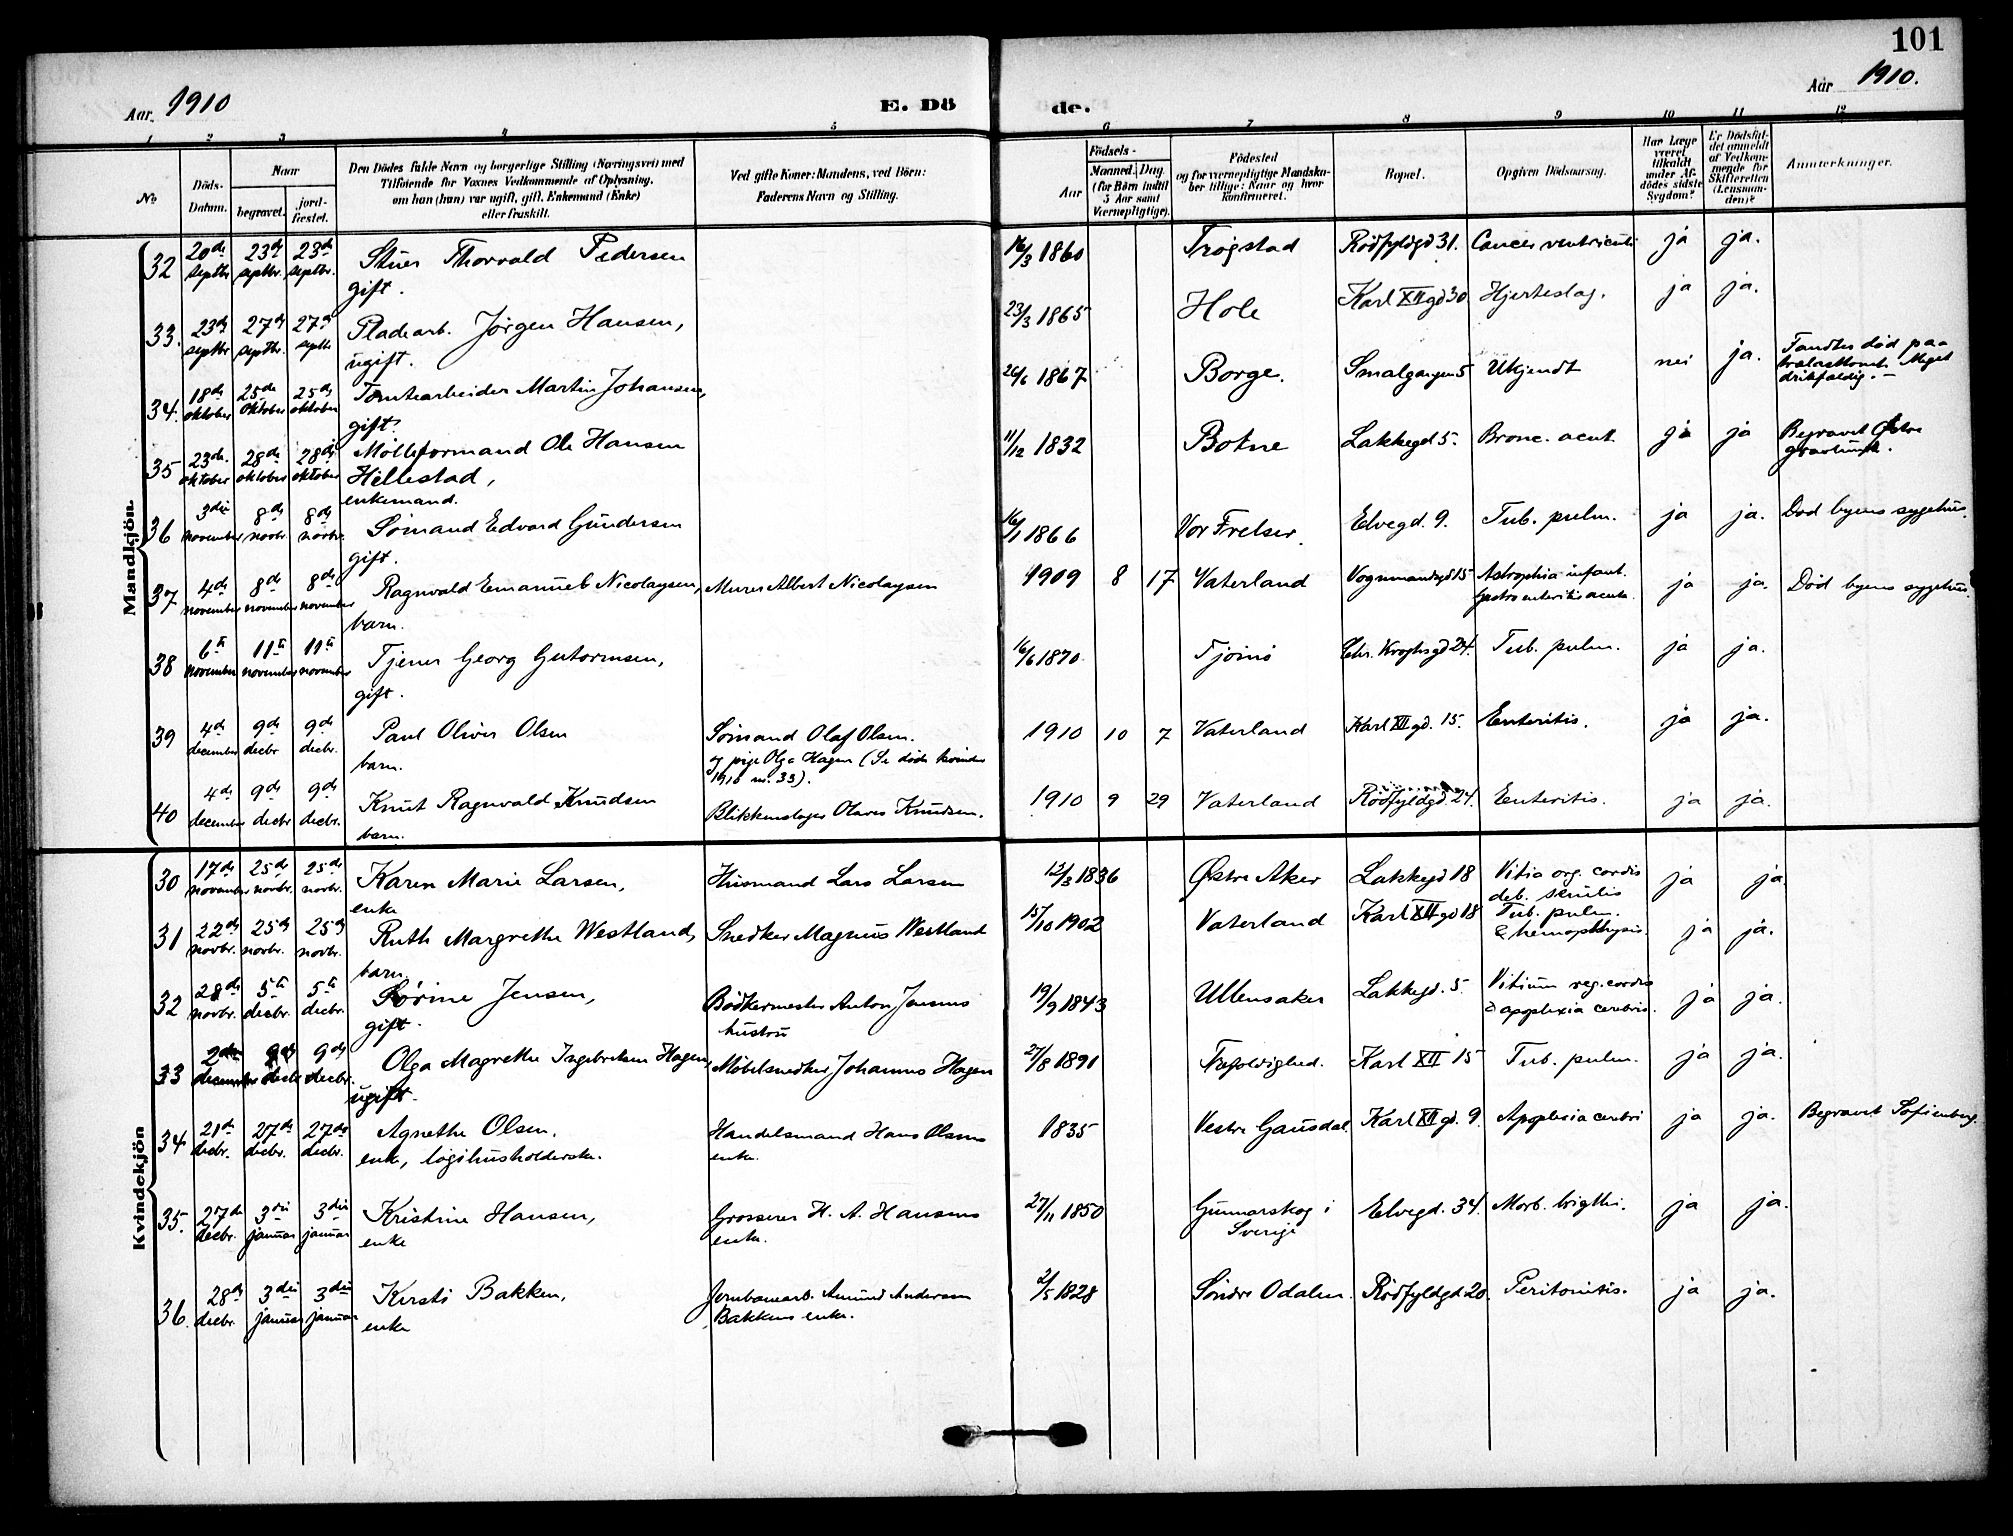 101
Aar 1910
E. Dö
de.
Aar 1910.
1 2 3 4 5 6 7 8 9 10 11 12
No
Döds-
Datum.
Naar
begravet.
jord-
fæstet.
Den Dödes fulde Navn og borgerlige Stilling (Næringsvei) med
Tilföiende for Voxnes Vedkommende af Oplysning,
om han (hun) var ugift, gift, Enkemand (Enke)
eller fraskilt.
Ved gifte Koner: Mandens, ved Börn:
Faderens Navn og Stilling.
Födsels-
Aar
Maaned. Dag.
(for Börn indtil
5 Aar samt
Værnepligtige).
Födested
og for værnepligtige Mandska-
ber tillige: Naar og hvor
konfirmeret.
Bopæl.
Opgiven Dödsaarsag.
Har Læge
været
tilkaldt
under Af-
dödes sidste
Sygdom?
Er Dödsfal-
det anmeldt
af Vedkom-
mende for
Skifteretten
(Lensman-
den)?
Anmærkninger.
Mandkjön.
32 20de septbr 23de septbr. 23de septbr. Stuer Thorvald Pedersen 16/3 1860 Trøgstad Rödfyldgd 31. Cancer ventriculi ja ja.
gift.
33. 23de septbr 27de septbr. 27de septbr Pladearb. Jørgen Hansen, 23/3 1865 Hole Karl XII gd 30 Hjerteslag. ja ja.
ugift.
34. 18de oktober 25de oktober 25de oktober Tomtearbeider Martin Johansen, 26/6 1867 Borge. Smalgangen 5 Ukjendt nei ja. Fandtes død paa
Meget
drikfældig. —
gift.
35 23de oktober 28de oktober 28de oktober Mølleformand Ole Hansen 11/12 1832 Botne Lakkegd 5. Bronc. acut. ja ja Begravet Østre
gravlund.
Hillestad,
enkemand.
36 3die november 8de novbr. 8de novbr. Sømand Edvard Gundersen 16/1 1866 Vor Frelser. Elvegd. 9. Tub. pulm. ja ja. Død byens sygehus.
gift.
37 4de november 8de november 8de november Ragnvald Emanuel Nicolaysen, Murer Albert Nicolaysen 1909 8 17 Vaterland Vognmandsgd 15 Astrophia infant.
Gastroenteritis acuta. ja ja. Død byens sygehus.
barn.
38 6te november 11te november 11te november Tjener Georg Gutormsen, 16/6 1870 Tjømø Chr. Kroghsgd 24. Tub. pulm. ja ja.
gift.
39 4de december 9de decbr 9de decbr. Paul Oliver Olsen Sømand Olaf Olsen. 1910 10 7 Vaterland Karl XII gd. 15. Enteritis. ja ja.
barn. og pige Olga Hagen (Se døde kvinder
1910 nr. 33).
40 4de december 9de decbr 9de decbr. Knut Ragnvald Knudsen Blikkenslager Olaves Knudsen. 1910 9 29 Vaterland Rödfyldgd. 24. Enteritis. ja ja.
barn.
Kvindekjön
30 17de november 25de novbr. 25de novbr. Karen Marie Larsen, Husmand Lars Larsen 12/3 1836 Østre Aker Lakkegd 18 Vitia org. cordis
deb. senilis ja ja.
enke
31 22de novbr. 25de novbr. 25de novbr. Ruth Margrethe Westland, Snedker Magnus Westland 15/10 1902 Vaterland Karl XII gd 18 Tub. pulm.
& hemopthysis. ja ja.
barn.
32 28de novbr. 5te decbr. 5te decbr. Sørine Jensen, Bødkermester Anton Jensens
hustru 19/9 1843 Ullensaker Lakkegd. 5. Vitium reg. cordis
& apoplexia cerebri. ja ja.
gift.
33 2den december 9de decbr 9de decbr. Olga Magrethe Ingebretsen Hagen, Møbelsnedker Johannes Hagen 27/8 1891 Trefoldighed. Karl XII 15 Tub. pulm. ja ja.
ugift.
34 21de decbr. 27de decbr. 27de decbr. Agnethe Olsen, Handelsmand Hans Olsens
enke. 1835 Vestre Gausdal. Karl XII gd. 9. Apoplexia cerebri ja ja. Begravet Sofienberg.
enke, logihusholderske.
35. 27de decbr. 3die januar 3die januar Kristine Hansen, Grosserer H. A. Hansens
enke. 27/11 1850 Gunnarskog i
Sverige Elvegd. 34. Morb. brigthi. ja ja.
enke
36. 28de decbr. 3die januar 3die januar Kirsti Bakken, Jernbanearb. Amund Andersen
Bakkens enke. 2/5 1828 Söndre Odalen. Rödfyldgd 20. Peritonitis. ja ja.
enke